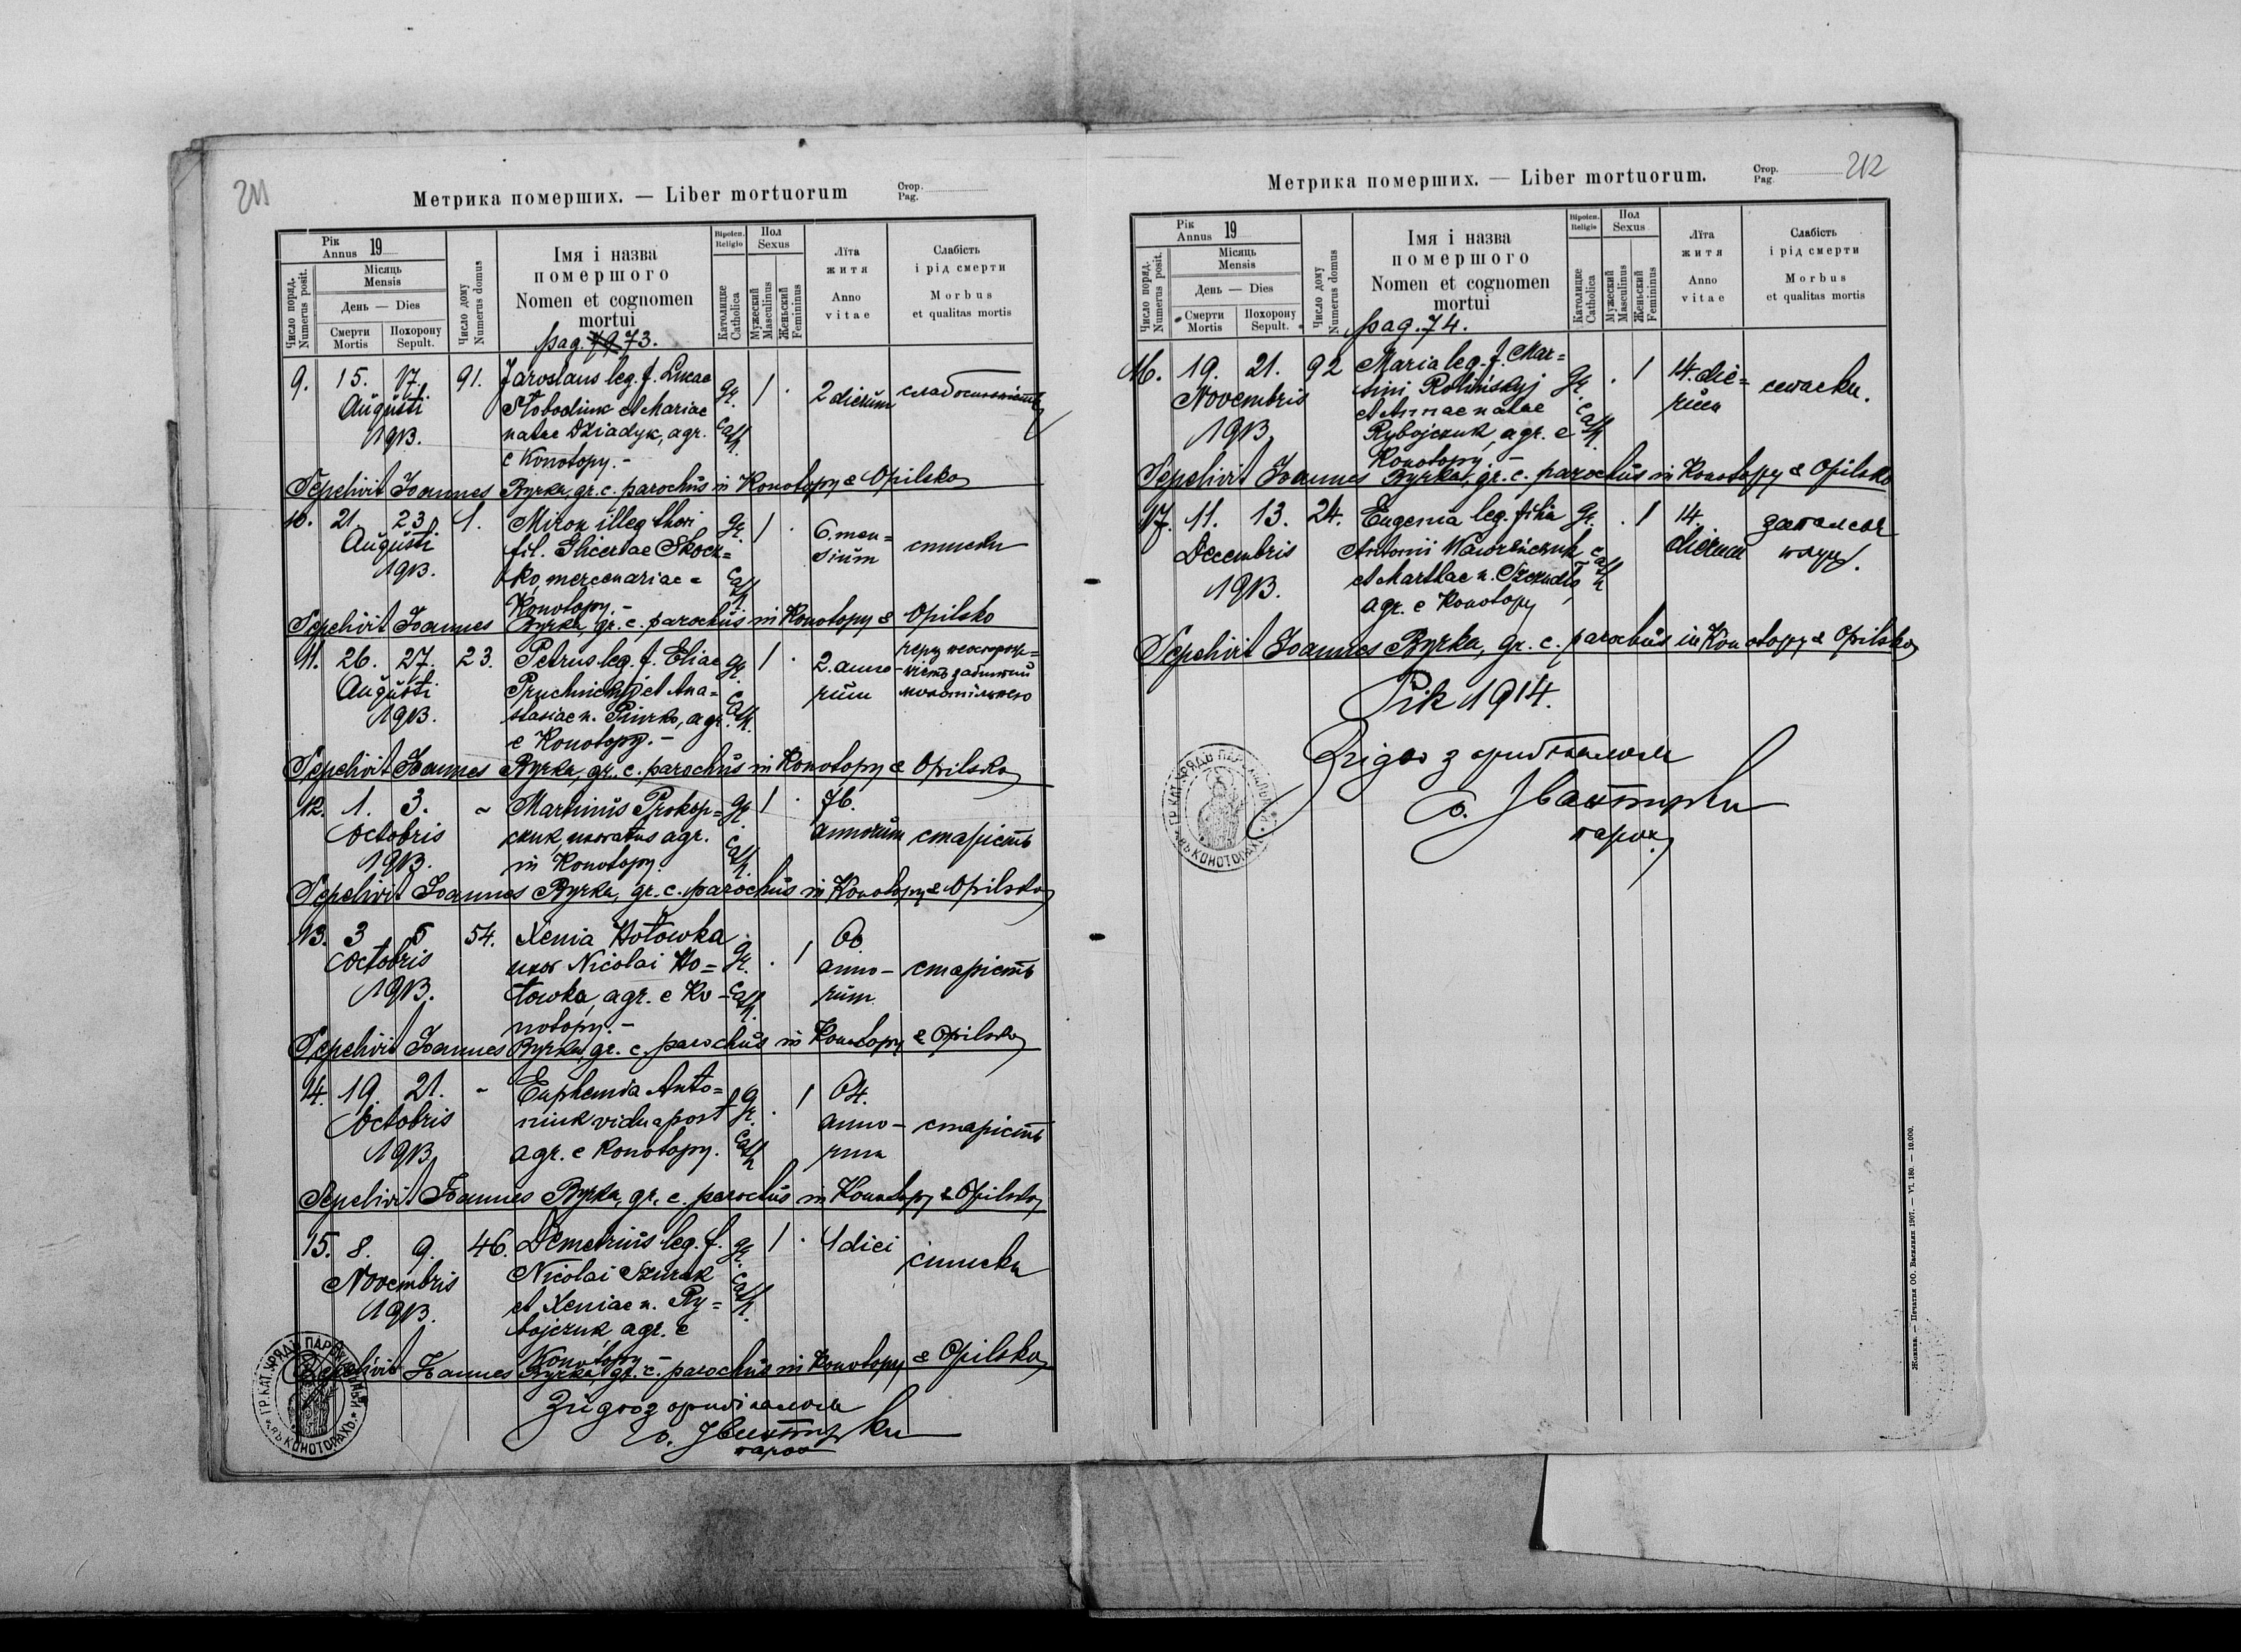 211
Метрика померших. — Liber mortuorum
Стор.
Pag.
Рік
Annus 19
Місяць
Mensis
День — Dies
Число поряд.
Numerus posit.
Смерти
Mortis
Похорону
Sepult.
Число дому
Numerus domus
Імя і назва
помершого
Nomen et cognomen
mortui
pag. 73.
Віроіспов.
Religio
Католицке
Catholica
Пол
Sexus
Мужеский
Masculinus
Женьский
Femininus
Лїта
житя
Anno
vitae
Слабість
і рід смерти
Morbus
et qualitas mortis
9. 15. 17. 91. Jaroslaus leg. f. Lucae gr. 1 . 2 dierum
Augusti Słobodiuk et Mariae cath.
1913. natae Dziadyk, agr.
e Konotopy.-
Sepelivit Joannes Byrka, gr. c. parochus in Konotopy & Opilsko
10. 21. 23. 1. Miron illeg. thori gr. 1 . 6. men=
Augusti fil. Gliceriae Skocz= cath. sium
1913. ko, mercenariae =
Konotopy.-
Sepelivit Joannes Byrka, gr. c. parochus in Konotopy & Opilsko
11. 26. 27. 23. Petrus leg. f. Eliae gr. 1 . 2. anno-
Augusti Pruchnickyj et Ana= cath. rum
1913. stasiae n. Piurko, agr.
e Konotopy.-
Sepelivit Joannes Byrka, gr. c. parochus in Konotopy & Opilsko
12. 1. 3. ~ Martinus Prokop= gr. 1 . 76.
Octobris czuk uxoratus agr. cath. annorum старість
1913. in Konotopy.
Sepelivit Joannes Byrka, gr. c. parochus in Konotopy & Opilsko
13. 3 5 54. Xenia Hołowka gr. . 1
Octobris uxor Nicolai Ho= anno- старість
1913. łowka, agr. e Ko- cath. rum
notopy.-
Sepelivit Joannes Byrka, gr. c. parochus in Konotopy & Opilsko
14. 19. 21. ~ Euphemia Anto= gr. . 1
Octobris niuk vidua post anno- старість
1913. agr. e Konotopy. cath. rum
Sepelivit Joannes Byrka, gr. c. parochus in Konotopy & Opilsko
15. 8. 9. 46. Demetrius leg. f. gr. 1 . 1 diei
Novembris Nicolai Szurak cath.
1913. et Xeniae n. Ry=
bojczuk, agr. e
Konotopy -
Sepelivit Joannes Byrka, gr. c. parochus in Konotopy & Opilsko
парох
212
Метрика померших. — Liber mortuorum.
Стор.
Pag.
Рік
Annus 19
Місяць
Mensis
День — Dies
Число поряд.
Numerus posit.
Смерти
Mortis
Похорону
Sepult.
Число дому
Numerus domus
Імя і назва
помершого
Nomen et cognomen
mortui
pag. 74.
Віроіспов.
Religio
Католицке
Catholica
Пол
Sexus
Мужеский
Masculinus
Женьский
Femininus
Лїта
житя
Anno
vitae
Слабість
і рід смерти
Morbus
et qualitas mortis
16. 19. 21. 92 Maria leg. f. Mar= gr. . 1 14. die=
Novembris tini Rolinskyj rum
1913. et Annae natae cath.
Rybojczuk, agr. e
Konotopy.-
Sepelivit Joannes Byrka, gr. c. parochus in Konotopy & Opilsko
17. 11. 13. 24. Eugenia leg. filia gr. . 1 14.
Decembris Antonii Wawreńczuk cath dierum
1913. et Marthae n. Szkudło,
agr. e Konotopy
Sepelivit Joannes Byrka, gr. c. parochus in Konotopy & Opilsko
Рік 1914.
парох
Жовква. — Печатня ОО. Василіян 1907. — VI. 180. — 10.000.